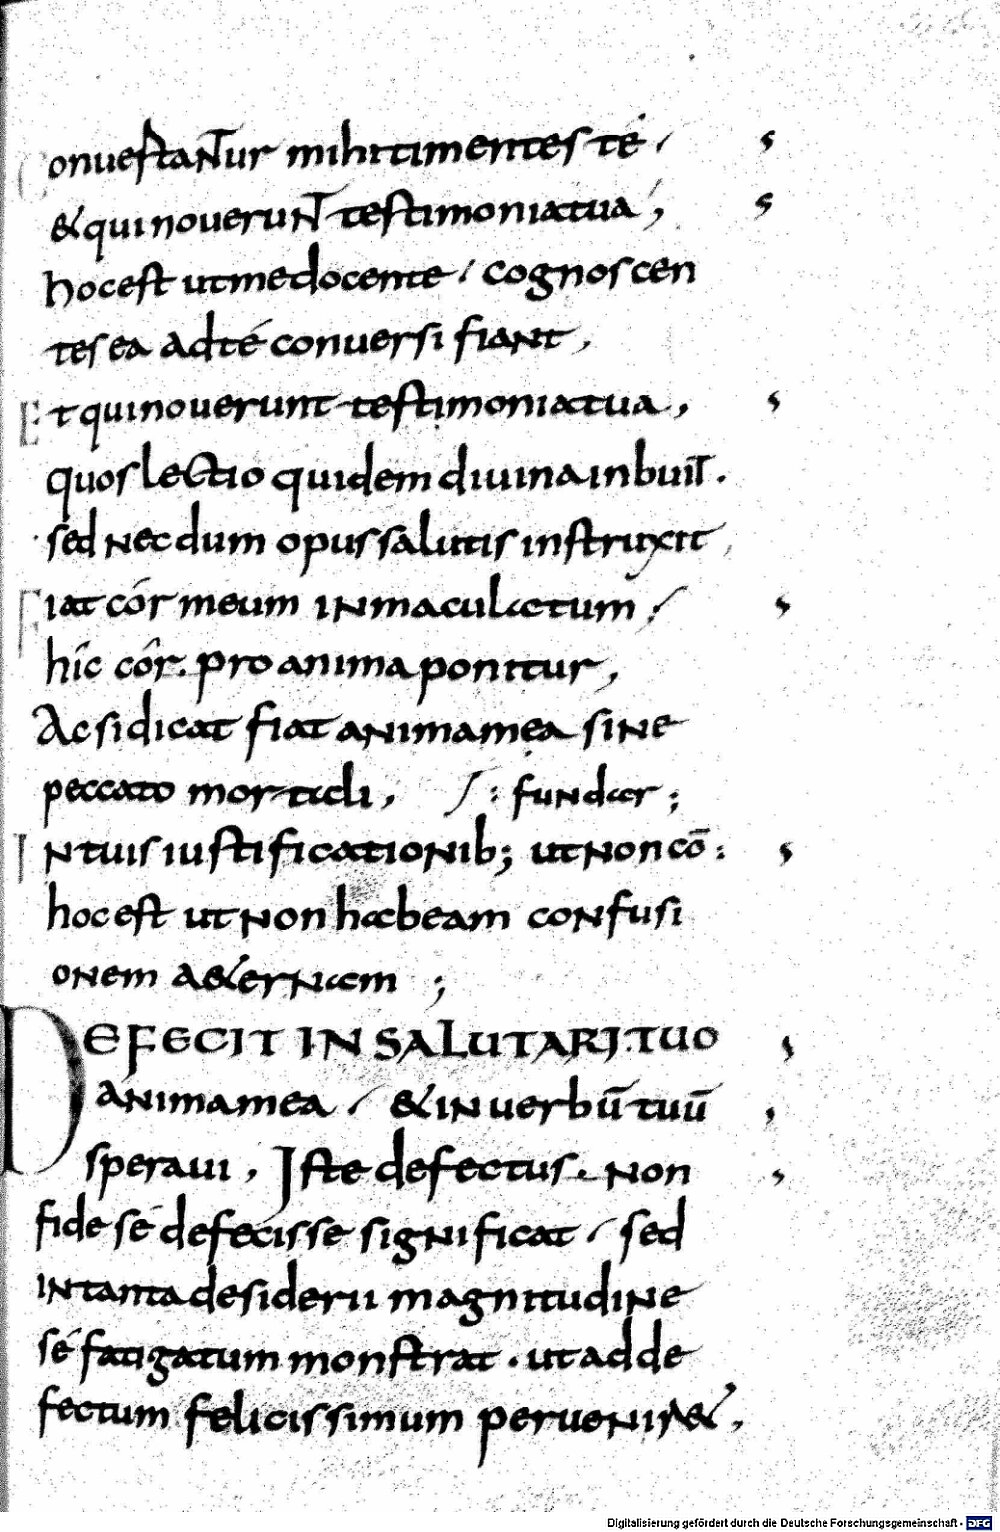 Conuertantur mihi timentes té /
& qui noverunt testimonia tua,
hoc est ut me docente / cognoscen
tes ea ad té conversi fiant,
Et qui noverunt testimonia tua,
quos lectio quidem divina inbuit.
sed necdum opus salutis instruxit,
Fiat cór meum inmaculatum /
hic cór. pro anima ponitur,
Ac si dicat fiat anima mea sine
peccato mortali, /: fundar;
In tuis iustificationib; ut non cō:
hoc est ut non habeam confusi
onem a&ernam ;
DEFECIT IN SALUTARI TUO
anima mea / & in verbū tuū
speravi, Iste defectus. non
fide sé defecisse significat / sed
in tanta desiderii magnitudine
sé fatigatum monstrat. ut ad de
fectum felicissimum pervenir&,
Digitalisierung gefördert durch die Deutsche Forschungsgemeinschaft - DFG